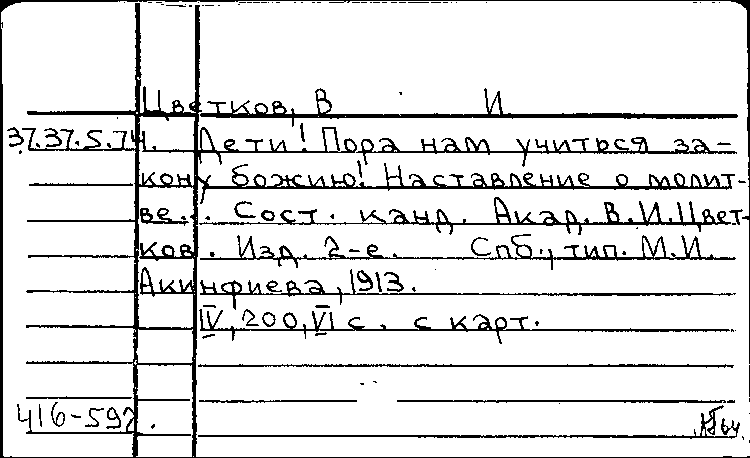 Цветков, В И
37.37.5.74. Дети! Пора нам учиться за-
кону божию! Наставление о молит-
ве... Сост. канд. Акад. В.И.Цвет-
ков. Изд. 2-е. Спб., тип. М.И.
Акинфиева, 1913.
IV, 200, VI с. с карт.
416-592.